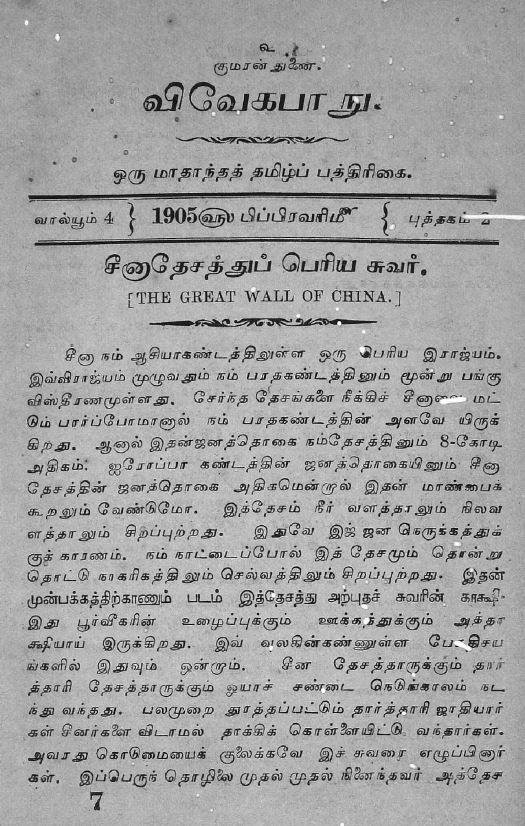 உ
குமரன் துணை.
விவேகபாநு.
ஒரு மாதாந்தத் தமிழ்ப் பத்திரிகை.
வால்யூம் 4 } 1905௵ பிப்பிரவரி௴ { புத்தகம் 2
சீனாதேசத்துப் பெரிய சுவர்.
[THE GREAT WALL OF CHINA.]
சீனா நம் ஆசியாகண்டத்திலுள்ள ஒரு பெரிய இராஜ்யம்.
இவ்விராஜ்யம் முழுவதும் நம் பரதகண்டத்தினும் மூன்று பங்கு
விஸ்தீரணமுள்ளது. சேர்ந்த தேசங்களை நீக்கிச் சீனாவை மட்
டும் பார்ப்போமானால் நம் பரதகண்டத்தின் அளவே யிருக்
கிறது. ஆனால் இதன்ஜனத்தொகை நம்தேசத்தினும் 8-கோடி
அதிகம். ஐரோப்பா கண்டத்தின் ஜனத்தொகையினும் சீனா
தேசத்தின் ஜனத்தொகை அதிகமென்றால் இதன் மாண்பைக்
கூறலும் வேண்டுமோ. இத்தேசம் நீர் வளத்தாலும் நிலவ
ளத்தாலும் சிறப்புற்றது. இதுவே இஜ் ஜன நெருக்கத்துக்
குக் காரணம். நம் நாட்டைப்போல் இத் தேசமும் தொன்று
தொட்டு நாகரிகத்திலும் செல்வத்திலும் சிறப்புற்றது. இதன்
முன்பக்கத்திற்காணும் படம் இத்தேசத்து அற்புதச் சுவரின் காக்ஷி
இது பூர்வீகரின் உழைப்புக்கும் ஊக்கத்துக்கும் அக்தா
க்ஷியாய் இருக்கிறது. இவ் வுலகின்கண்ணுள்ள பேரதிசய
ங்களில் இதுவும் ஒன்றாம். சீன தேசத்தாருக்கும் தார்
த்தாரி தேசத்தாருக்கும் ஓயாச் சண்டை நெடுங்காலம் நட
ந்து வந்தது. பலமுறை துரத்தப்பட்டும் தார்த்தாரி ஜாதியார்
கள் சீனர்களை விடாமல் தாக்கிக் கொள்ளையிட்டு வந்தார்கள்.
அவரது கொடுமையைக் குலைக்கவே இச் சுவரை எழுப்பினார்
கள். இப்பெருந் தொழிலை முதல் முதல் நினைந்தவர் அத்தேச
7